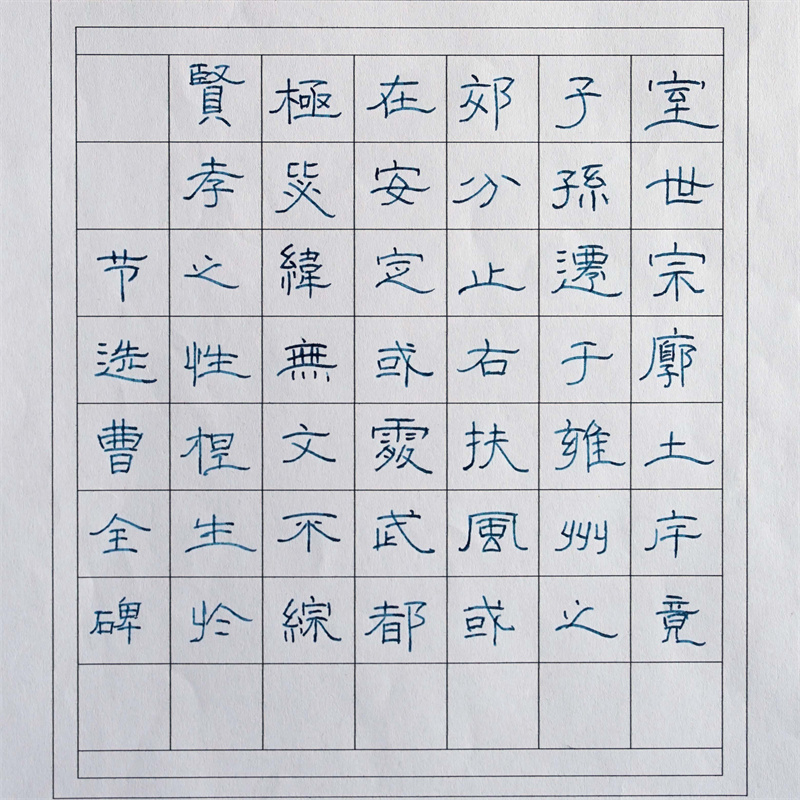 室世宗廓土斥竟
子孫遷于雍州之
郊分止右扶風或
在安定或處武都
極毖緯無文不綜
賢孝之性根生於
节选曹全碑